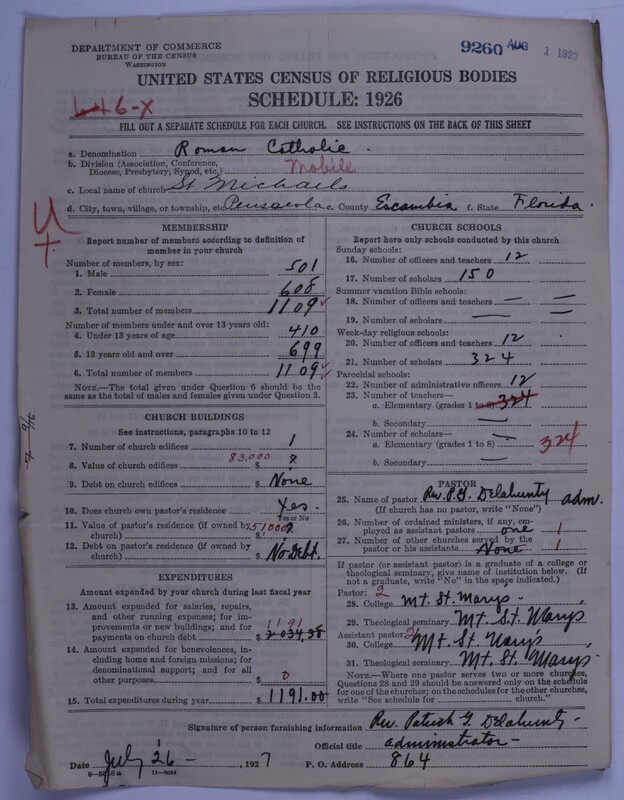 DEPARTMENT OF COMMERCE
BUREAU OF THE CENSUS
WASHINGTON
9260 AUG 1 1927
UNITED STATES CENSUS OF RELIGIOUS BODIES
SCHEDULE: 1926
6-X
FILL OUT A SEPARATE SCHEDULE FOR EACH CHURCH. SEE INSTRUCTIONS ON THE BACK OF THIS SHEET
a. Denomination Roman Catholic
b. Division (Association, Conference, Diocese, Presbytery, Synod, etc.) Mobile
c. Local name of church St Michaels
d. City, town, village, or township, etc. Pensacola e. County Escambia f. State Florida.
MEMBERSHIP
Report number of members according to definition of member in your church
Number of members, by sex:
1. Male 501
2. Female 608
3. Total number of members 1109
Number of members under and over 13 years old:
4. Under 13 years of age 410
5. 13 years old and over 699
6. Total number of members 1109
NOTE.—The total given under Question 6 should be the same as the total of males and females given under Question 3.
CHURCH BUILDINGS
See instructions, paragraphs 10 to 12
7. Number of church edifices 1
8. Value of church edifices 83,000 $ ?
9. Debt on church edifices $ None
10. Does church own pastor's residence Yes.
Yes or No
11. Value of pastor's residence (if owned by church) $ ?
12. Debt on pastor's residence (if owned by church) $ No debt.
EXPENDITURES
Amount expended by your church during last fiscal year
13. Amount expended for salaries, repairs, and other running expenses; for improvements or new buildings; and for payments on church debt $ 1191
14. Amount expended for benevolences, including home and foreign missions; for denominational support; and for all other purposes $ 0
15. Total expenditures during year $ 1191.00
CHURCH SCHOOLS
Report here only schools conducted by this church
Sunday schools:
16. Number of officers and teachers 12
17. Number of scholars 150
Summer vacation Bible schools:
18. Number of officers and teachers —
19. Number of scholars —
Week-day religious schools:
20. Number of officers and teachers 12
21. Number of scholars 324
Parochial schools:
22. Number of administrative officers 12
23. Number of teachers—
a. Elementary (grades 1 to 8) 324
b. Secondary —
24. Number of scholars—
a. Elementary (grades 1 to 8) 324
b. Secondary —
PASTOR
25. Name of pastor Rev. P.G. Delahunty adm.
(If church has no pastor, write "None")
26. Number of ordained ministers, if any, employed as assistant pastors one 1
27. Number of other churches served by the pastor or his assistants None 1
If pastor (or assistant pastor) is a graduate of a college or theological seminary, give name of institution below. (If not a graduate, write "No" in the space indicated.)
Pastor: 2
28. College Mt. St. Marys
29. Theological seminary Mt. St. Marys
Assistant pastor: 2
30. College Mt St Marys
31. Theological seminary Mt. St. Marys
NOTE.—Where one pastor serves two or more churches, Questions 28 and 29 should be answered only on the schedule for one of the churches; on the schedules for the other churches, write "See schedule for church."
Signature of person furnishing information Rev. Patrick G. Delahunty
Official title administrator
Date July 26 , 1927 P. O. Address 864